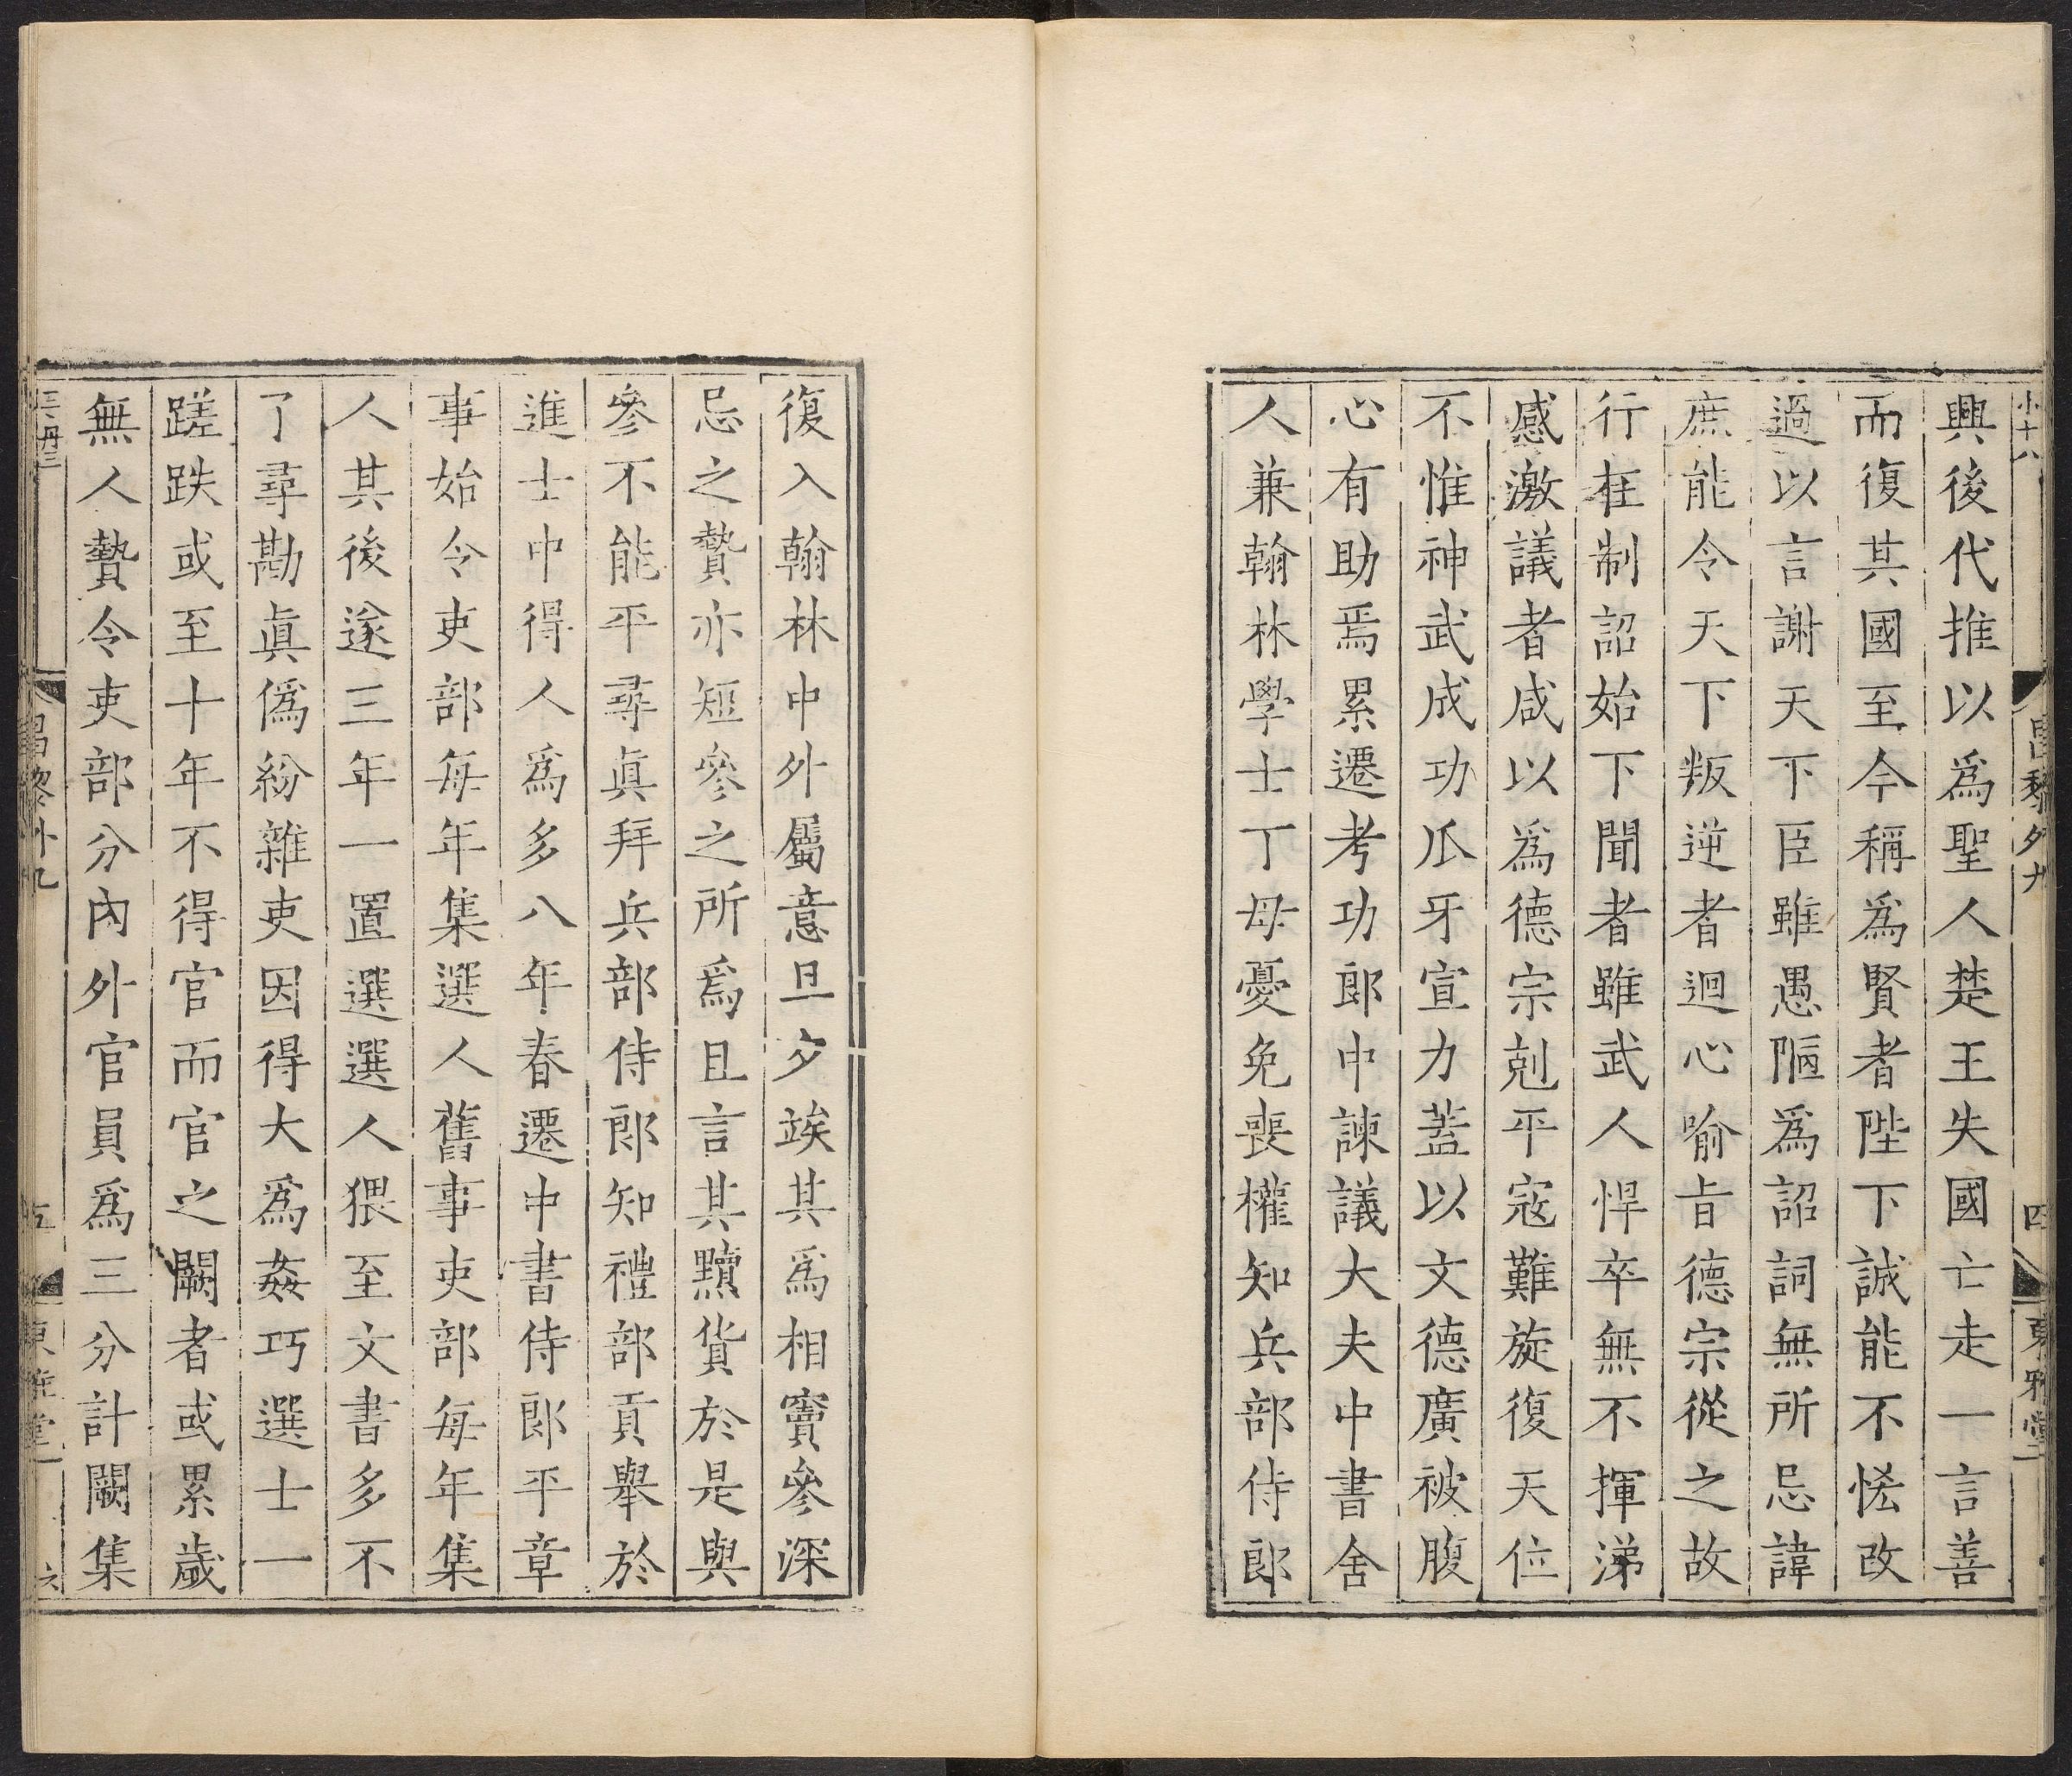 小十八
昌黎外九
四
東雅堂
興後代推以爲聖人楚王失國亡走一言善
而復其國至今稱爲賢者陛下誠能不恡改
過以言謝天下臣雖愚陋爲詔詞無所忌諱
庶能令天下叛逆者迴心喻旨德宗從之故
行在制詔始下聞者雖武人悍卒無不揮涕
感激議者咸以爲德宗剋平寇難旋復天位
不惟神武成功爪牙宣力蓋以文德廣被腹
心有助焉累遷考功郎中諫議大夫中書舍
人兼翰林學士丁母憂免喪權知兵部侍郎
復入翰林中外屬意旦夕竢其爲相竇參深
忌之贄亦短參之所爲且言其黷貨於是與
參不能平尋眞拜兵部侍郎知禮部貢舉於
進士中得人爲多八年春遷中書侍郎平章
事始令吏部每年集選人舊事吏部每年集
人其後遂三年一置選選人猥至文書多不
了尋勘眞僞紛雜吏因得大爲姦巧選士一
蹉跌或至十年不得官而官之闕者或累歲
無人贄令吏部分內外官員爲三分計闕集
昌黎外九
五
東雅堂
六